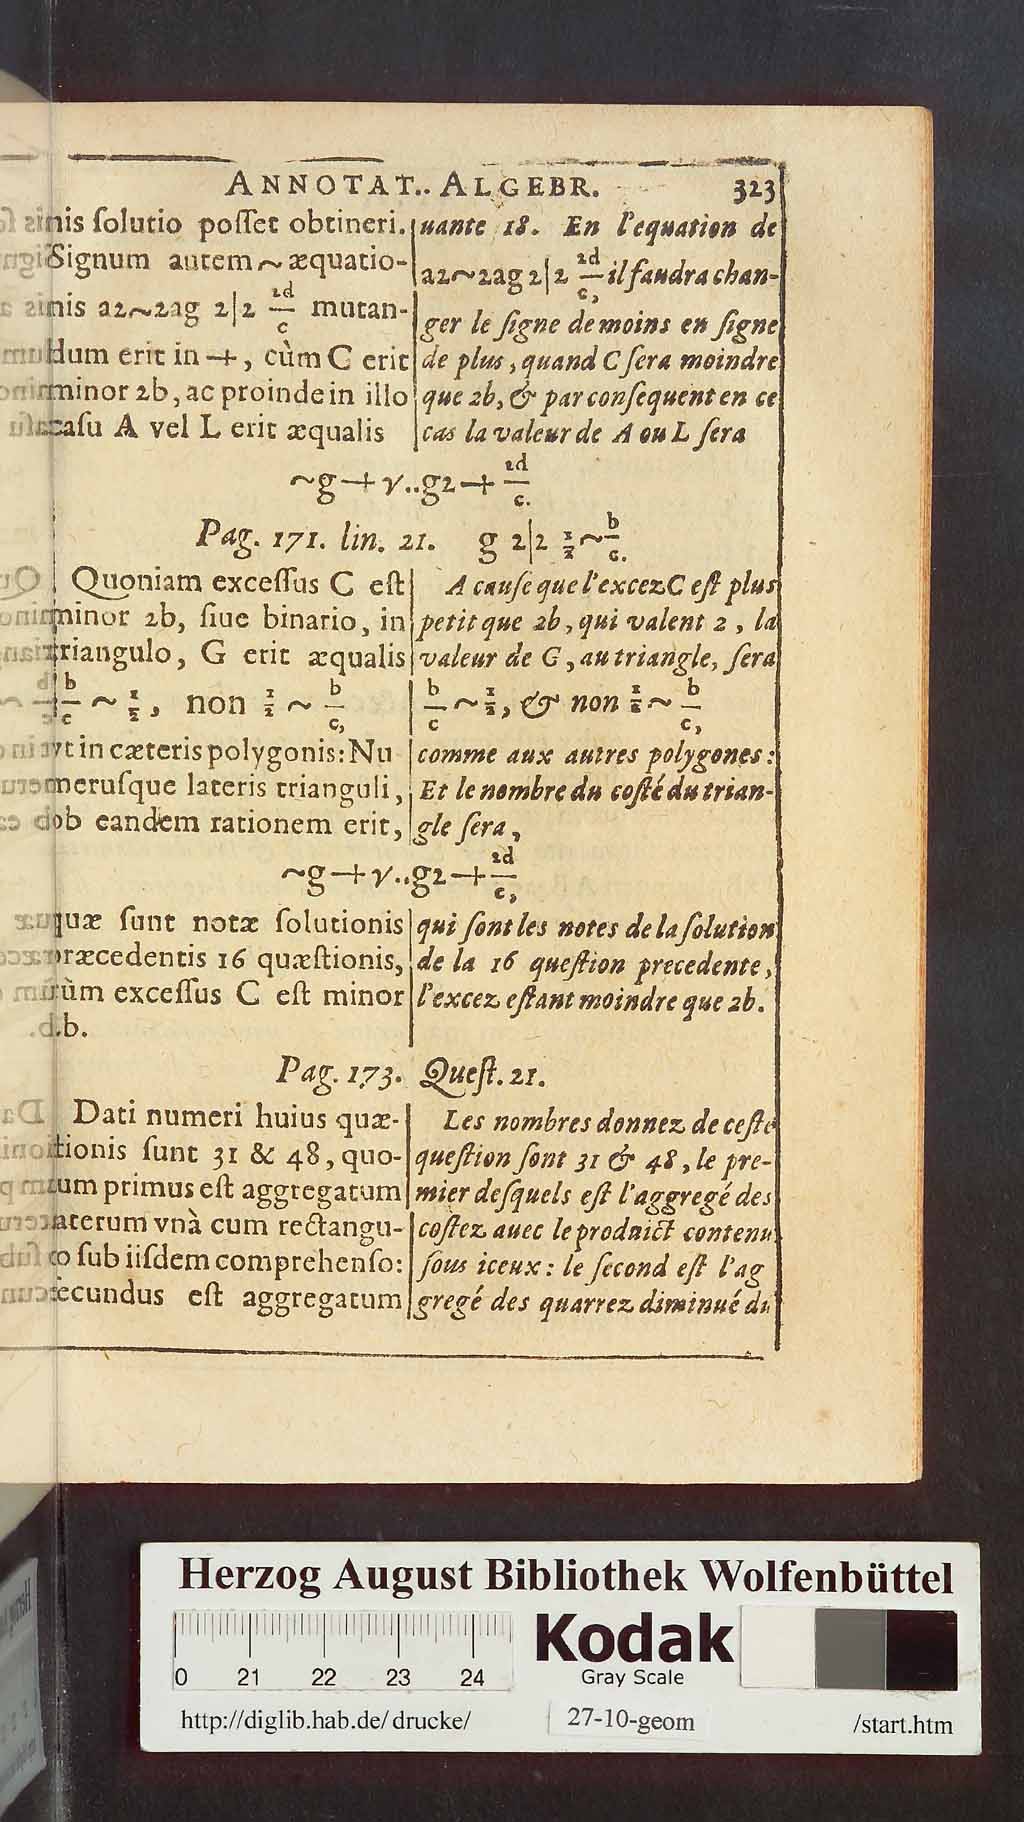 ANNOTAT.. ALGEBR. 323
nis ſolutio poſſet obtineri.
Signum autem ~ æquatio-
nis a2~2ag 2|2 2d/c mutan-
dum erit in +, cùm C erit
minor 2b, ac proinde in illo
caſu A vel L erit æqualis
uante 18. En l'equation de
a2~2ag 2|2 2d/c, il faudra chan-
ger le ſigne de moins en ſigne
de plus, quand C ſera moindre
que 2b, & par conſequent en ce
cas la valeur de A ou L ſera
~g+γ..g2+2d/c.
Pag. 171. lin. 21. g 2|2 1/2~b/c.
Quoniam exceſſus C eſt
minor 2b, ſiue binario, in
triangulo, G erit æqualis
b/c ~ 1/2, non 1/2 ~ b/c,
vt in cæteris polygonis: Nu
meruſque lateris trianguli,
ob eandem rationem erit,
A cauſe que l'excez C eſt plus
petit que 2b, qui valent 2, la
valeur de G, au triangle, ſera
b/c ~ 1/2, & non 1/2 ~ b/c,
comme aux autres polygones:
Et le nombre du coſté du trian-
gle ſera,
~g+γ..g2+2d/c,
quæ ſunt notæ ſolutionis
præcedentis 16 quæſtionis,
cùm exceſſus C eſt minor
2b.
qui ſont les notes de la ſolution
de la 16 queſtion precedente,
l'excez eſtant moindre que 2b.
Pag. 173. Queſt. 21.
Dati numeri huius quæ-
ſtionis ſunt 31 & 48, quo-
rum primus eſt aggregatum
laterum vnà cum rectangu-
lo ſub iiſdem comprehenſo:
ſecundus eſt aggregatum
Les nombres donnez de ceſte
queſtion ſont 31 & 48, le pre-
mier deſquels eſt l'aggregé des
coſtez auec le produict contenu
ſous iceux: le ſecond eſt l'ag
gregé des quarrez diminué du
Herzog August Bibliothek Wolfenbüttel
0 21 22 23 24
Kodak
Gray Scale
http://diglib.hab.de/drucke/ 27-10-geom /start.htm